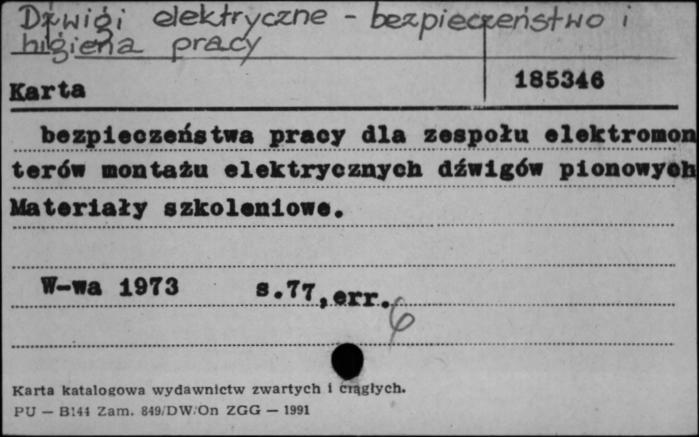 Dźwigi elektryczne - bezpieczeństwo i
higiena pracy
185346
Karta
bezpieczeństwa pracy dla zespołu elektromon
terów montażu elektrycznych dźwigów pionowych
Materiały szkoleniowe.
W-wa 1973 s.77,err.
6
Karta katalogowa wydawnictw zwartych i ciągłych.
PU — B144 Zam. 849/DW/On ZGG — 1991